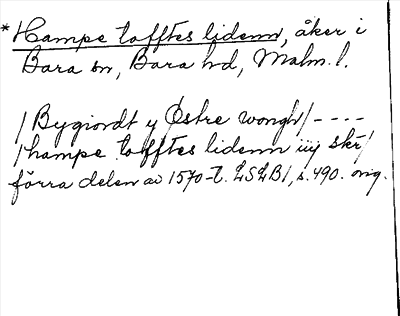 *Hampe tofftes lidenn, åker i
Bara sn, Bara hd, Malm. l.
/Bygiordt y Østre wongh/----
/hampe tofftes lidenn iiij skr/
förra delen av 1570-t. LSLB1, s. 490. orig.